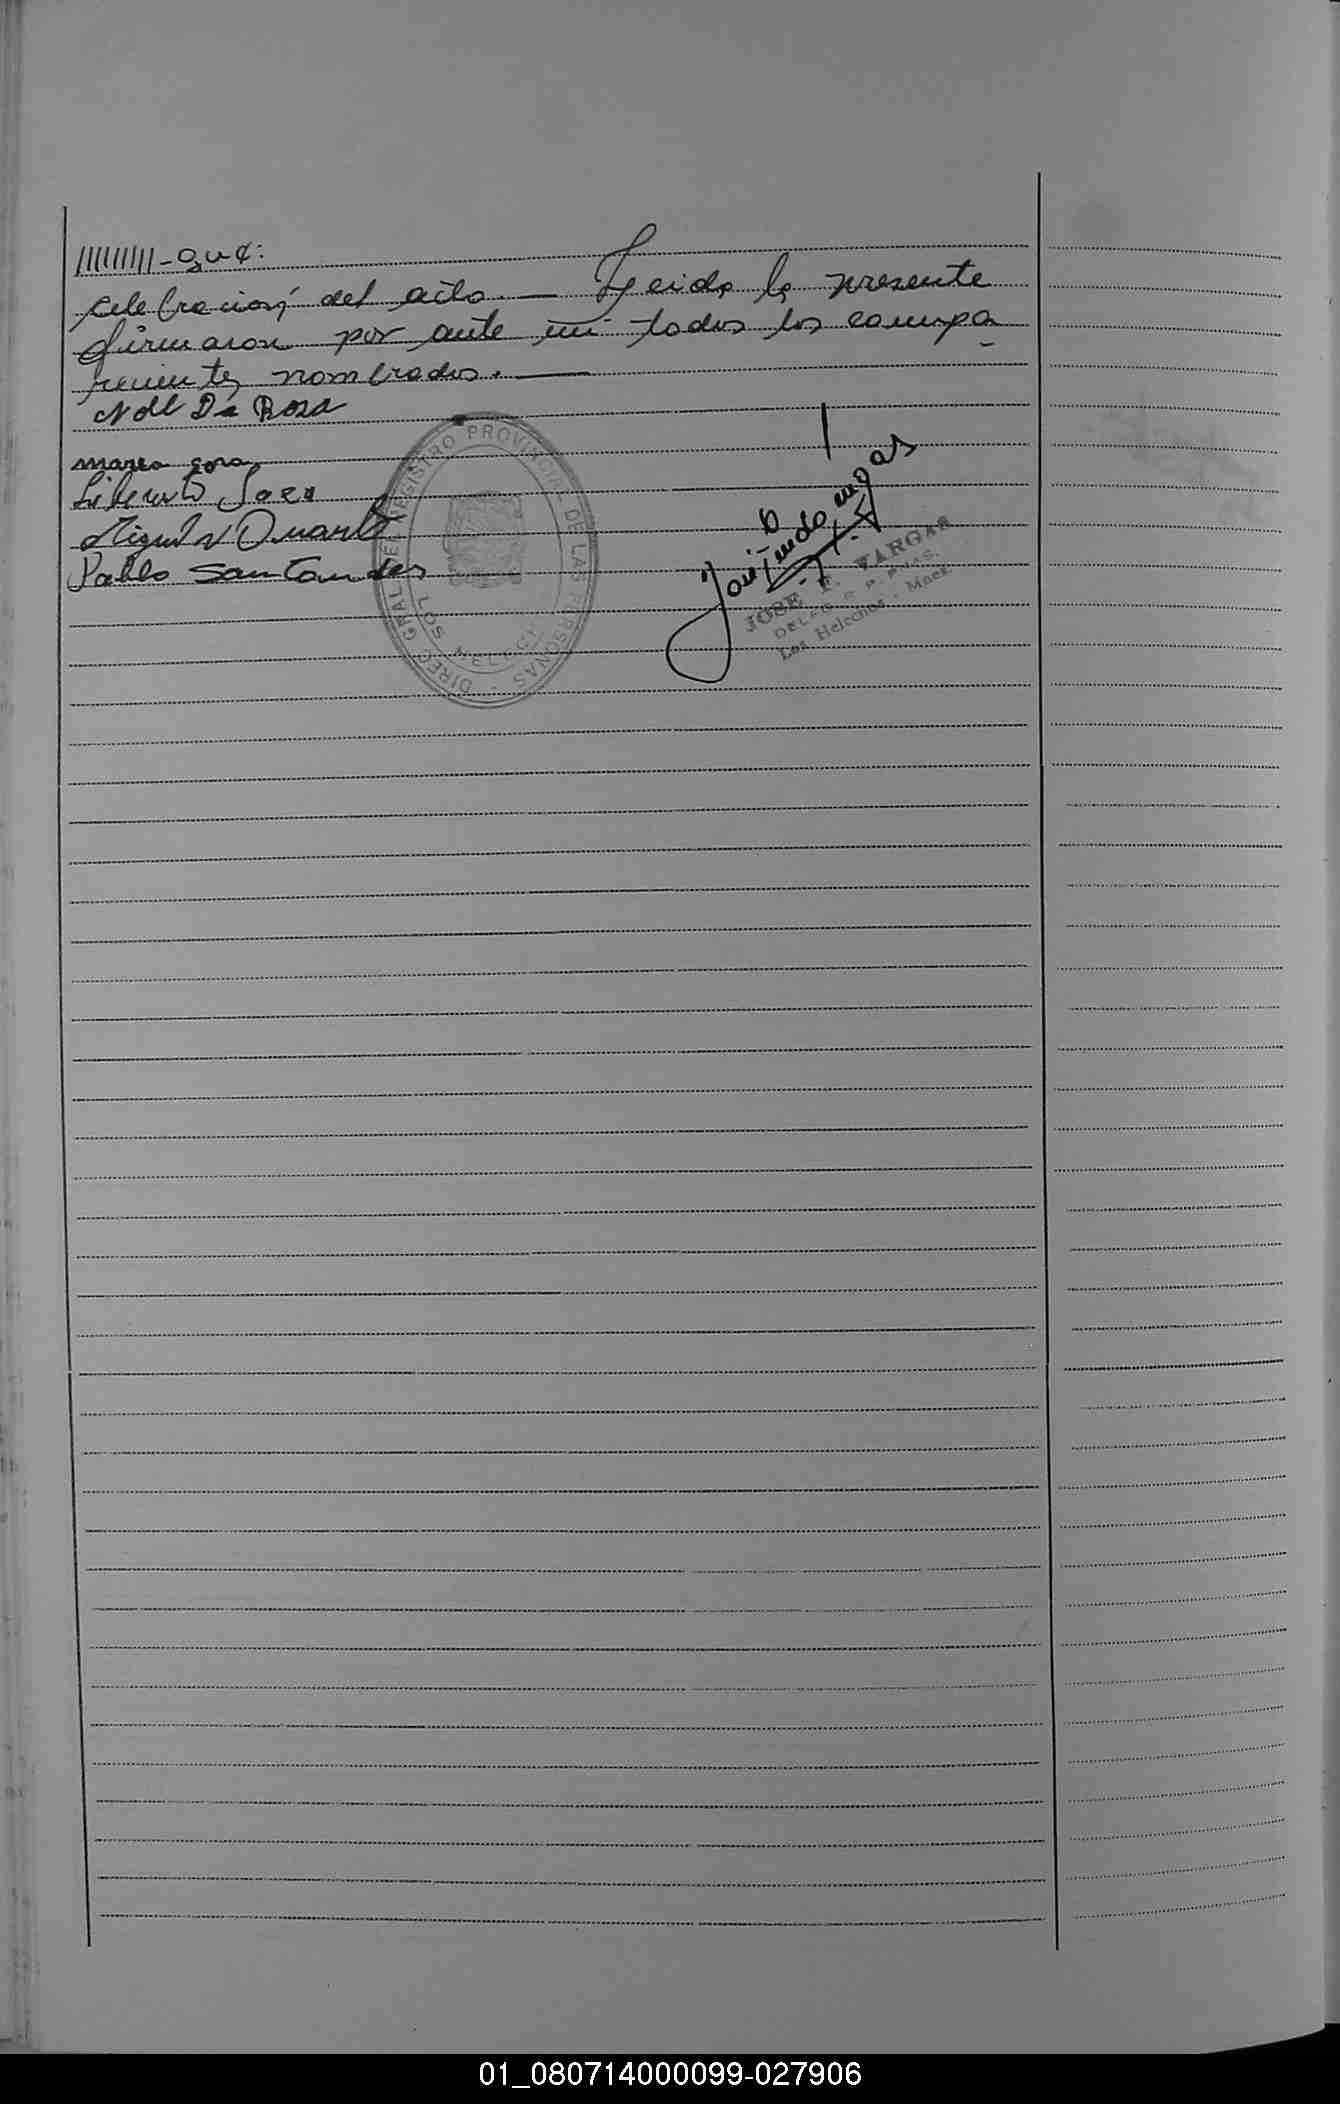 //////////-que:
celebración del acto.— Leida la presente
firmaron por ante mi todos los compa
recientes nombrados.—
N del Da Rosa
maria
Liberato
Miguel Duarte
Pablo Santander
DIREC GRAL DEL REGISTRO PROVINCIAL DE LAS PERSONAS -
LOS HELECHOS
JOSE F. VARGAS
DELEG R. P. P/LAS.
Los Helechos - Mnes.
01_080714000099-027906